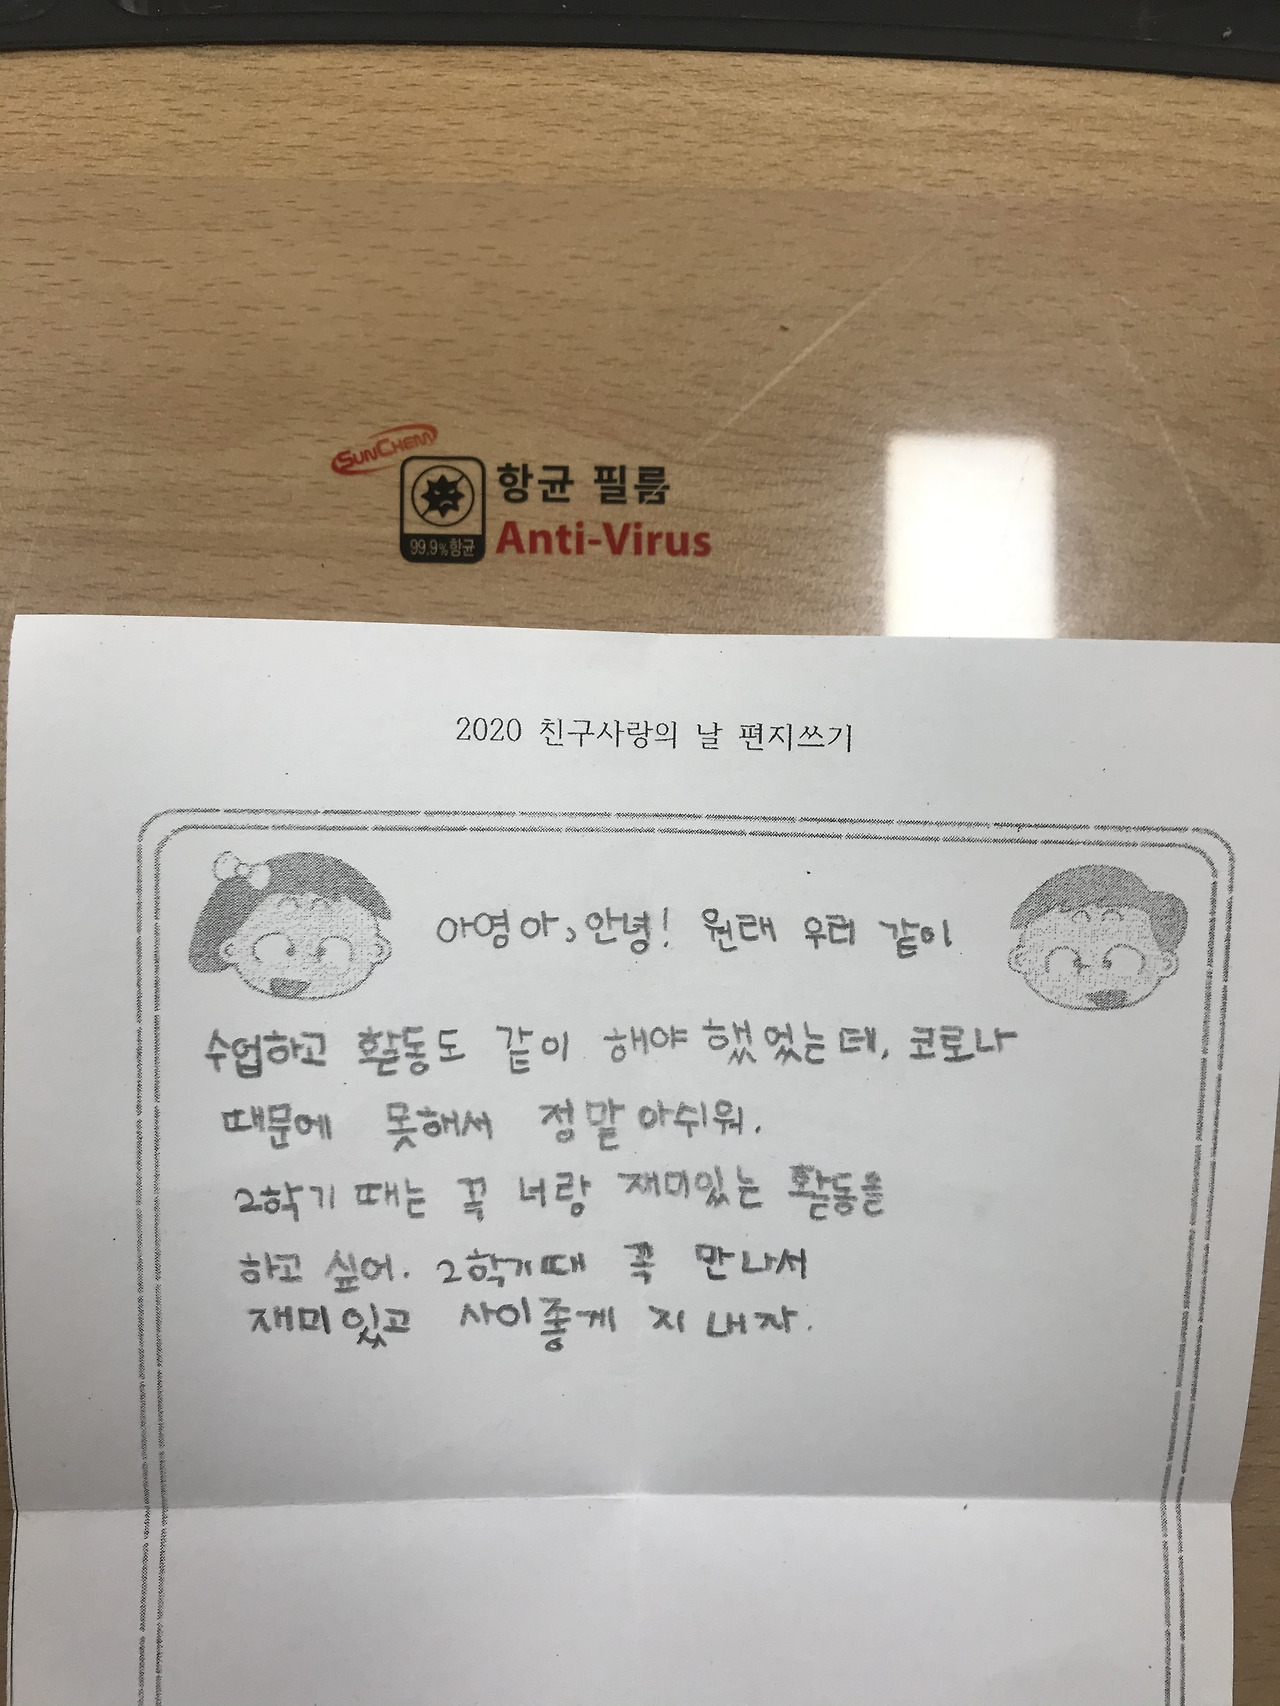 SUNCHEM
항균 필름
99.9% 항균
Anti-Virus
2020 친구사랑의 날 편지쓰기
아영아, 안녕! 원래 우리 같이
수업하고 활동도 같이 해야 했었는데, 코로나
때문에 못해서 정말 아쉬워.
2학기 때는 꼭 너랑 재미있는 활동을
하고 싶어. 2학기때 꼭 만나서
재미있고 사이좋게 지내자.